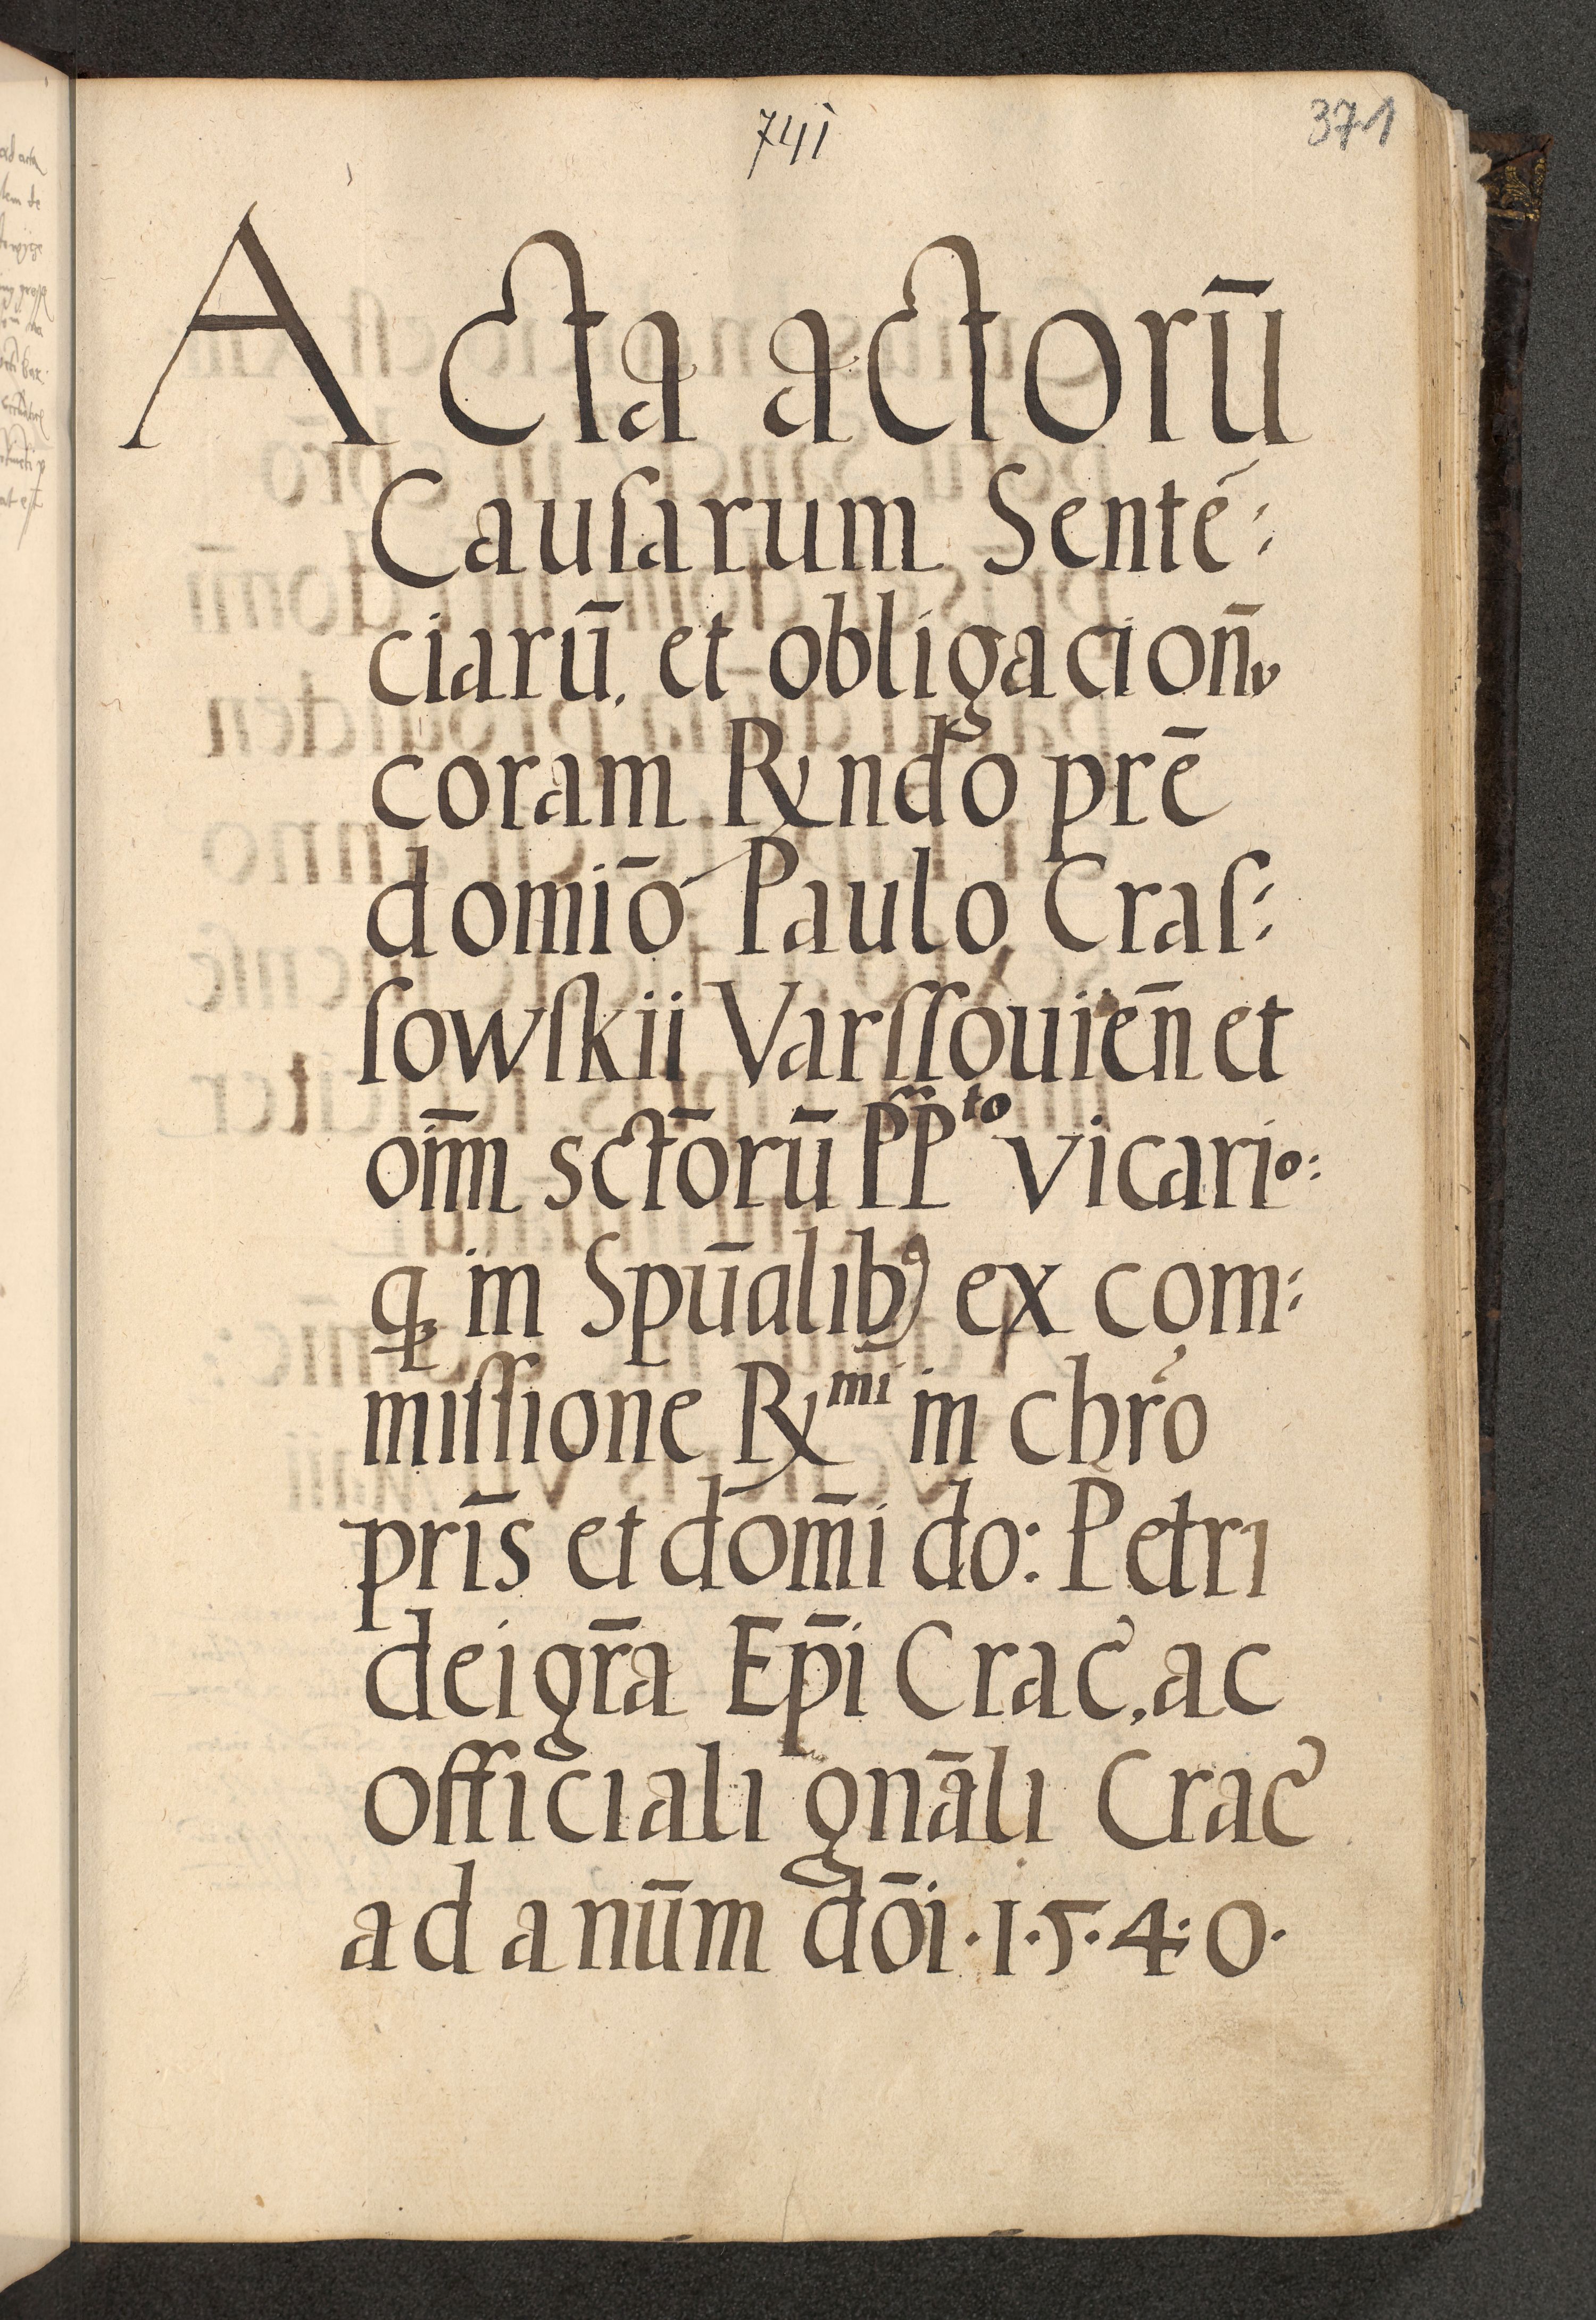 741
371
Acta actorū
Causarum Sentē:
ciarū. et obligacion̄v
coram Rndo prē
domīo Paulo Cras:
sowskii Varssouien̄ et
oīm sctōrū PPto vicario:
qꝫ in Spūalibꝰ ex com:
missione Rmi in chro
prīs et dōm̄i do: Petri
dei gr̄a Ep̄i Crac̄, ac
officiali gnāli Crac̄
ad anūm dōi · 1 · 5 · 4 : 0 ·